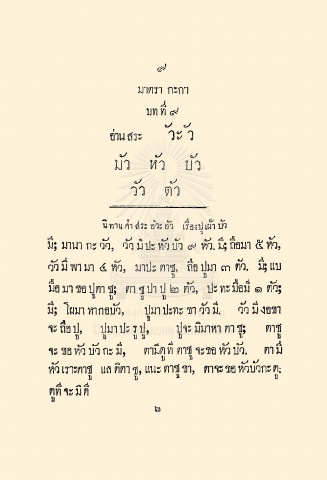 ๙
มาตรา กะกา
บทที่ ๙
อ่านสระ วัะ วั
มัว หัว บัว
วัว ตัว
นิทานคำสระ อัวะ อัว เรื่องปู่เฝ้าบัว
มี; มานา กะ วัว, วัว มี ปะ หัว บัว ๙ หัว. มี; ถือมา ๕ หัว,
วัว มี พา มา ๔ หัว, มาปะ ตาชู, ถือ ปูมา ๓ ตัว. มี; แบ
มือ มา ขอ ปูตา ชู; ตา ชู ปา ปู ๒ ตัว, ปะ ทะ มือมี ๑ ตัว;
มี; โผมา หากอบัว, ปูมา ปะทะ ขา วัว มี. วัว มี งอขา
จะ ถือ ปู, ปูมา ปะ รู ปู, ปูจะ มีมาหา ตา ชู; ตาชู
จะ ขอ หัว บัว กะ มี, ตามีดู ที่ ตาชู จะขอ หัว บัว. ตา มี
หัวเราะตาชู แล ติตา ชู, แนะ ตา ชู ขา, ตาจะ ขอ หัวบัวกะ ดู.
ดูที่ จะ มิ ดี
๒